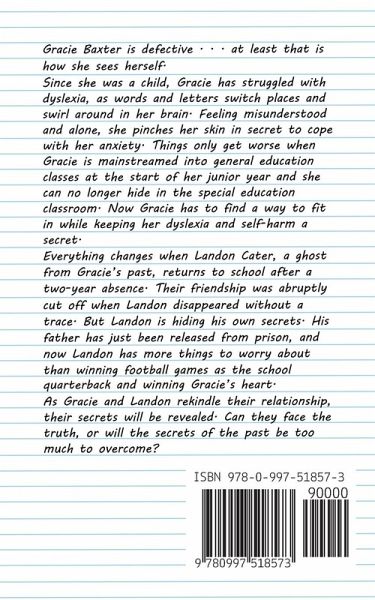 Gracie Baxter is defective · · · at least that is
how she sees herself.
Since she was a child, Gracie has struggled with
dyslexia, as words and letters switch places and
swirl around in her brain. Feeling misunderstood
and alone, she pinches her skin in secret to cope
with her anxiety. Things only get worse when
Gracie is mainstreamed into general education
classes at the start of her junior year and she
can no longer hide in the special education
classroom. Now Gracie has to find a way to fit
in while keeping her dyslexia and self-harm a
secret.
Everything changes when Landon Cater, a ghost
from Gracie's past, returns to school after a
two-year absence. Their friendship was abruptly
cut off when Landon disappeared without a
trace. But Landon is hiding his own secrets. His
father has just been released from prison, and
now Landon has more things to worry about
than winning football games as the school
quarterback and winning Gracie's heart.
As Gracie and Landon rekindle their relationship,
their secrets will be revealed. Can they face the
truth, or will the secrets of the past be too
much to overcome?
ISBN 978-0-997-51857-3
90000
9 780997 518573